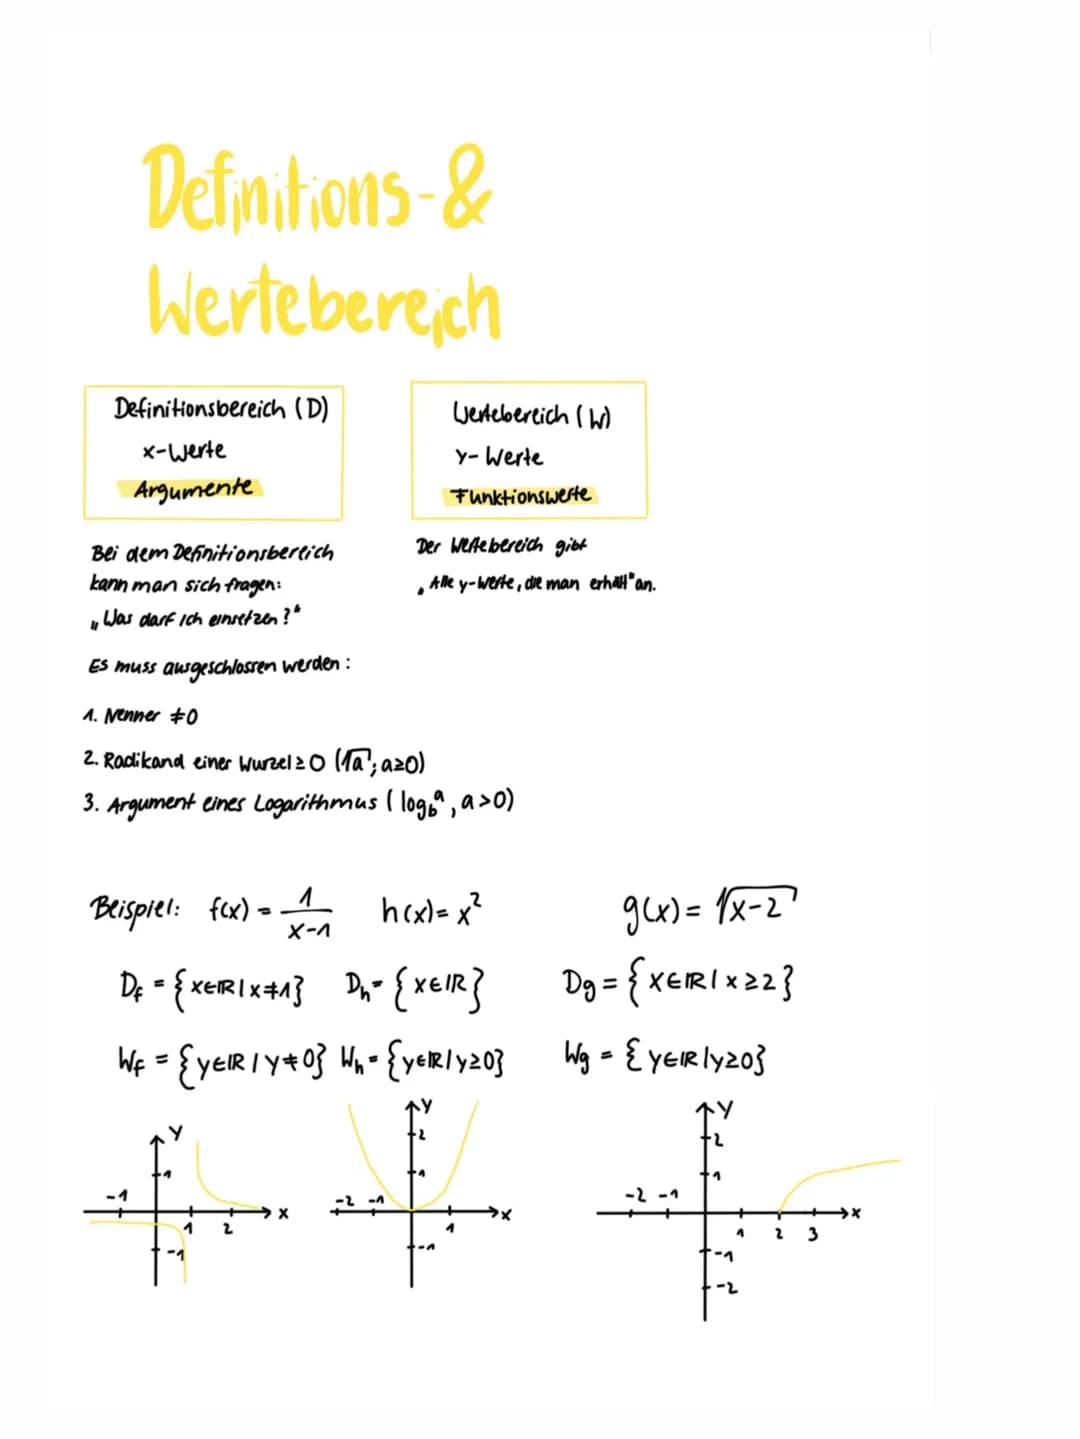 Definitions-&
Wertebereich
Definitionsbereich (D)
x-Werte
Argumente
Wertebereich (W)
y-Werte
Funktionswerte
Bei dem Definitionsbereich
kann man sich fragen:
„Was darf ich einsetzen?“
Der Wertebereich gibt
„Alle y-Werte, die man erhält“ an.
Es muss ausgeschlossen werden:
1. Nenner ≠0
2. Radikand einer Wurzel ≥ 0 (√a; a≥0)
3. Argument eines Logarithmus (log_b^a, a>0)
Beispiel: f(x) = 1/(x-1) h(x)= x² g(x)= √(x-2)
D_f = {x∈ℝ | x≠1} D_h = {x∈ℝ} D_g = {x∈ℝ | x≥2}
W_f = {y∈ℝ | y≠0} W_h = {y∈ℝ | y≥0} W_g = {y∈ℝ | y≥0}
y
1
-1
x
1 2
-1
y
2
1
-2 -1
x
1
-1
y
2
1
-2 -1
x
1 2 3
-1
-2